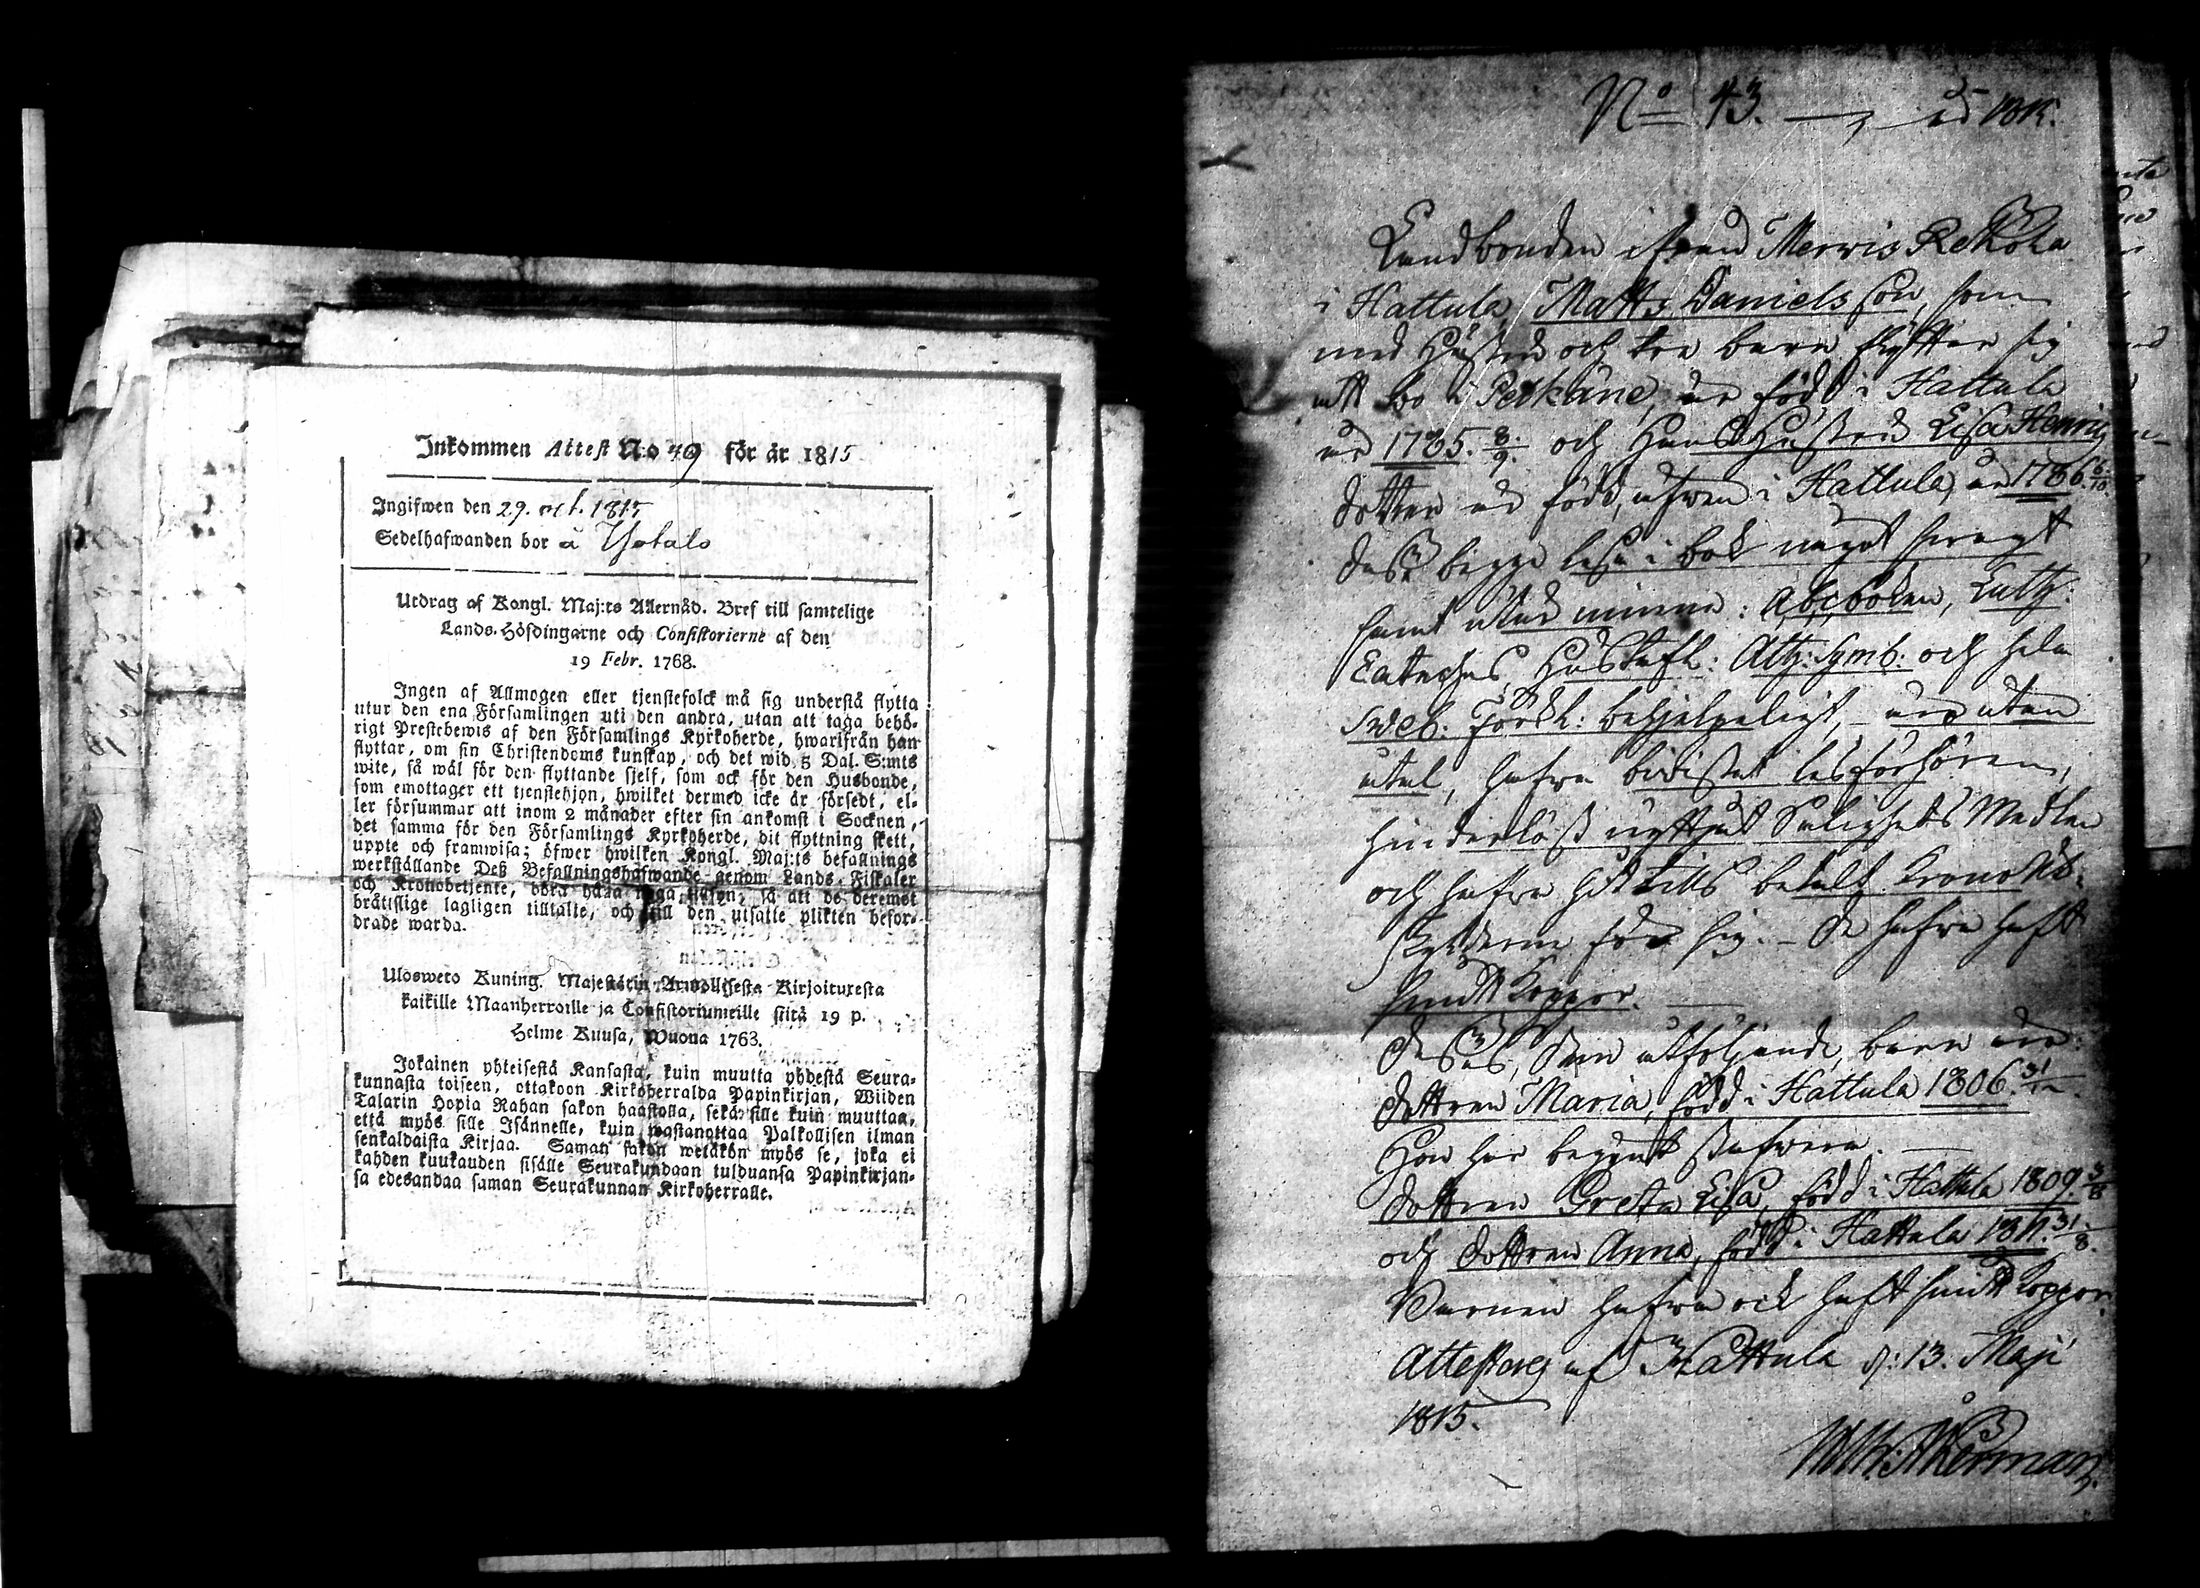 Inkommen Attest N:o 49 för år 1815
Ingifwen den 29. oct. 1815
Sedelhafwanden bor å
Utdrag af Kongl. Maj:ts Allernåd. Bref till samtelige
Lands-Höfdingarne och Consistorierne af den
19 Febr. 1768.
Ingen af Allmogen eller tjenstefolck må sig understå flytta
utur den ena Församlingen uti den andra, utan att taga behö-
rigt Prestebewis af den Församlings Kyrkoherde, hwarifrån han
flyttar, om sin Christendoms kunskap, och det wid 5 Dal. S:mts
wite, så wäl för den flyttande sjelf, som ock för den Husbonde,
som emottager ett tjenstehjon, hwilket dermed icke är försedt, el-
ler försummar att inom 2 månader efter sin ankomst i Socknen,
det samma för den Församlings Kyrkoherde, dit flyttning skett,
uppte och framwisa; öfwer hwilken Kongl. Maj:ts befallnings
werkställande Deß Befallningshafwande genom Lands-Fiskaler
och Kronobetjente, böra hafwa noga tilsyn, så att de deremot
bråttslige lagligen tilltalte, och till den utsatte plikten befor-
drade warda.
Ulosweto Kuning. Majestätin Armollisesta Kirjoituxesta
kaikille Maanherroille ja Consistoriumeille siitä 19 p.
Helme Kuusa, Wuona 1763.
Jokainen yhteisestä Kansasta, kuin muutta yhdestä Seura-
kunnasta toiseen, ottakoon Kirkoherralda Papinkirjan, Wiiden
Talarin Hopia Rahan sakon haastolla, sekä sille kuin muuttaa,
että myös sille Isännelle, kuin wastanottaa Palkollisen ilman
senkaldaista Kirjaa. Saman sakon wetäkön myös se, joka ei
kahden kuukauden sisälle Seurakundaan tulduansa Papinkirjan-
sa edesandaa saman Seurakunnan Kirkoherralle.
No 43. — ad 1815.
Landbonden ifrån Merwis Retkola
i Hattula, Matts Danielsson, som
med Hustru och tre barn flytter sig
att bo i Pelkäne, är född i Hattula
år 1785. 8/9. och Hans Hustru Lisa Henrics
dotter är född, äfwen i Hattula, år 1786 6/10.
Deße bägge läsa i bok något swagt
samt utur minne: Abcboken, Luth:
Catechs, Hustafl: Ath: Symb: och hela
Sweb: Förkl: behjelpeligt, — äro utan
utal, hafva bewistat läsförhören,
hinderlöst nyttjat Salighets Medlen
och hafva hittills betalt Krono Ut-
skylderne för sig. — De hafva haft
smittkoppor. —
Deßas, dem åtföljande, barn äro:
dottren Maria, född i Hattula 1806. 31/12.
Hon har begynt stafwa. —
dottren Greta Lisa, född i Hattula 1809. 3/8
och dottren Anna, född i Hattula 1811. 31/8.
Barnen hafva ock haft smittkoppor.
Attesteras af Hattula d: 13. Maji
1815.
Åkerman.